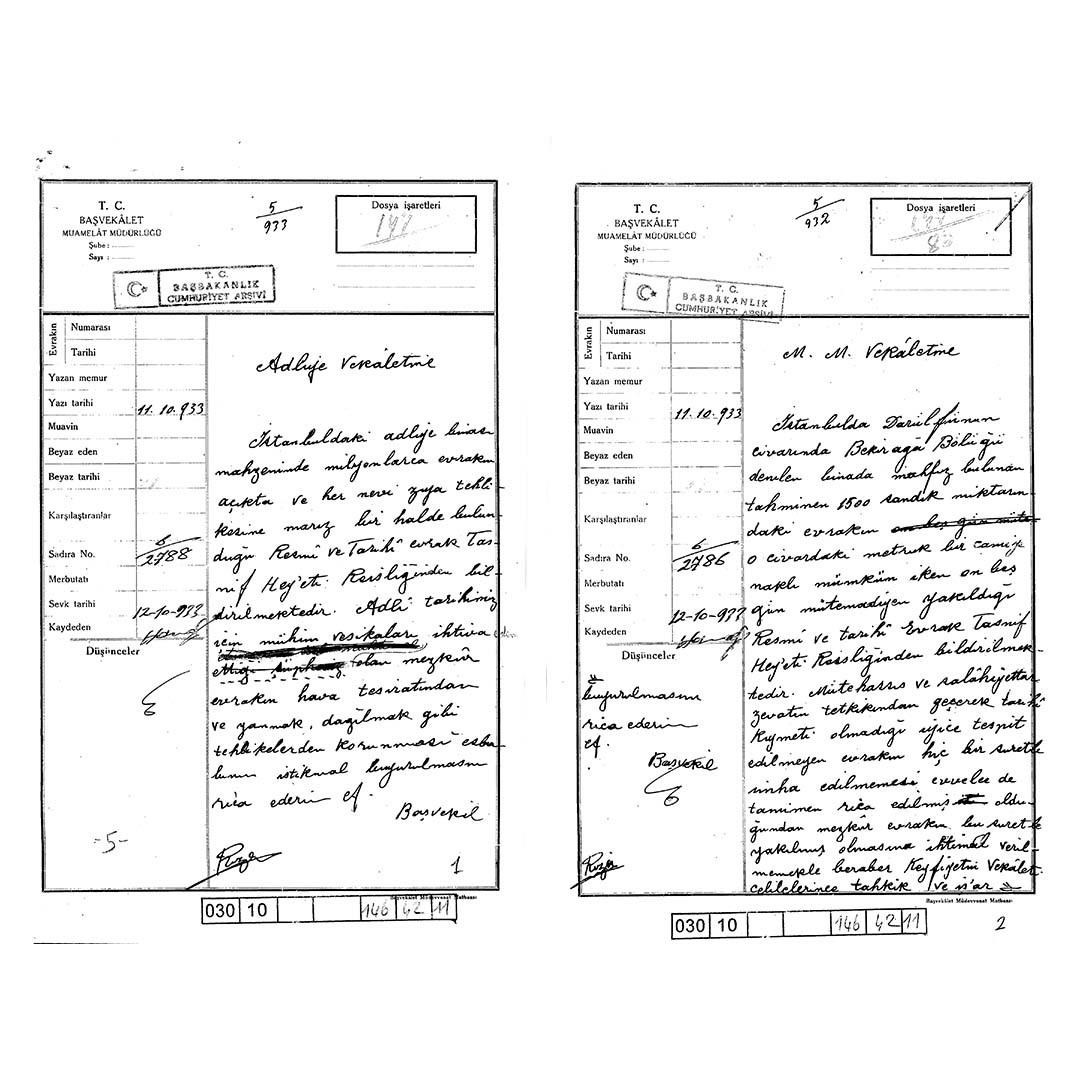 T. C.
BAŞVEKÂLET
MUAMELÂT MÜDÜRLÜĞÜ
Şube :
Sayı :
5
933
Dosya işaretleri
T. C.
BAŞBAKANLIK
CUMHURİYET ARŞİVİ
Evrakın
Numarası
Tarihi
Yazan memur
Yazı tarihi 11.10.933
Muavin
Beyaz eden
Beyaz tarihi
Karşılaştıranlar
Sadıra No. 6
2788
Merbutatı
Sevk tarihi 12-10-933
Kaydeden
Düşünceler
Adliye Vekâletine
İstanbuldaki adliye binası
mahzeninde milyonlarca evrakın
açıkta ve her nevi zıya tehli
kesine maruz bir halde bulun
duğu Resmî ve Tarihî evrak Tas-
nif Hey'eti Reisliğinden bil-
dirilmektedir. Adlî tarihimiz
için mühim vesikaları ihtiva eden
olan mezkûr
evrakın hava tesiratından
ve yanmak, dağılmak gibi
tehlikelerden korunması esba-
bının istikmal buyurulmasını
rica ederim ef.
Başvekil
-5-
1
Başvekâlet Müdevvenat Matbaası
030 10 146 42 11
T. C.
BAŞVEKÂLET
MUAMELÂT MÜDÜRLÜĞÜ
Şube :
Sayı :
5
932
Dosya işaretleri
T. C.
BAŞBAKANLIK
CUMHURİYET ARŞİVİ
Evrakın
Numarası
Tarihi
Yazan memur
Yazı tarihi 11.10.933
Muavin
Beyaz eden
Beyaz tarihi
Karşılaştıranlar
Sadıra No. 6
2786
Merbutatı
Sevk tarihi 12-10-933
Kaydeden
Düşünceler
M. M. Vekâletine
İstanbulda Darülfünun
civarında Bekirağa Bölüğü
denilen binada mahfuz bulunan
tahminen 1500 sandık miktarın-
daki evrakın on beş gün müte
o civardaki metruk bir camiye
nakli mümkün iken on beş
gün mütemadiyen yakıldığı
Resmî ve tarihî Evrak Tasnif
Hey'eti Reisliğinden bildirilmek-
tedir. Mütehassıs ve salâhiyettar
zevatın tetkikından geçerek tarihî
kıymeti olmadığı iyice tespit
edilmeyen evrakın hiç bir suretle
imha edilmemesi evvelce de
tamimen rica edilmiş oldu-
ğundan mezkûr evrakın bu suretle
yakılmış olmasına ihtimal veril-
memekle beraber Keyfiyetin Vekâlet
celilelerince tahkik ve iş'ar
buyurulmasını
rica ederim
ef.
Başvekil
Başvekâlet Müdevvenat Matbaası
030 10 146 42 11
2